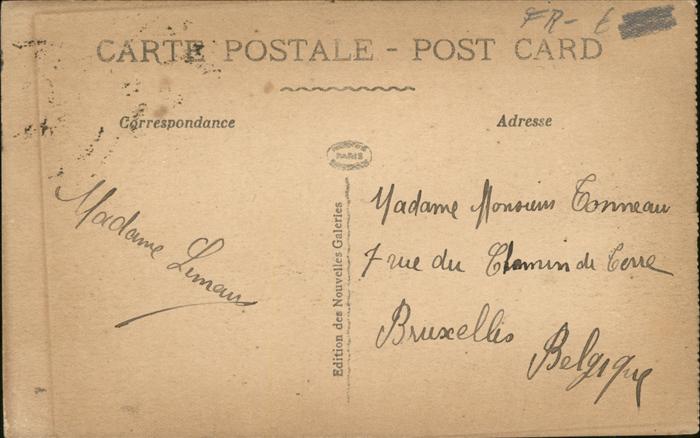 FR- 6
CARTE POSTALE - POST CARD
Correspondance
Adresse
PARIS
Madame Limans
Edition des Nouvelles Galeries
Madame Monsieur Tonneau
7 rue du Chemin de Terre
Bruxelles
Belgique